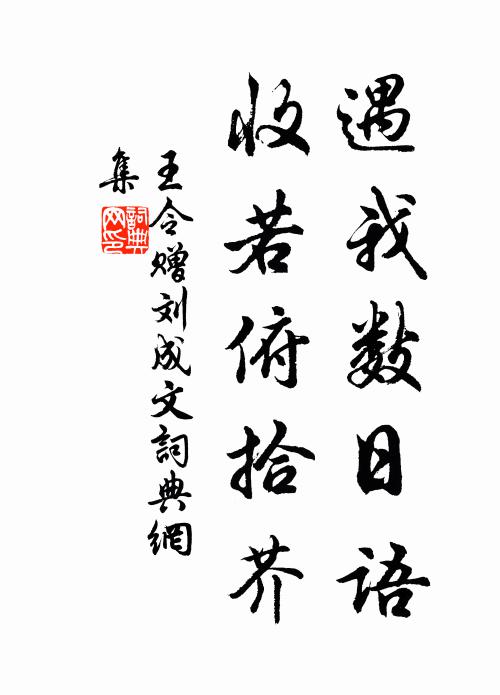 遇我数日语
收若俯拾芥
王令赠刘成文詞典網
集
詞典
网印